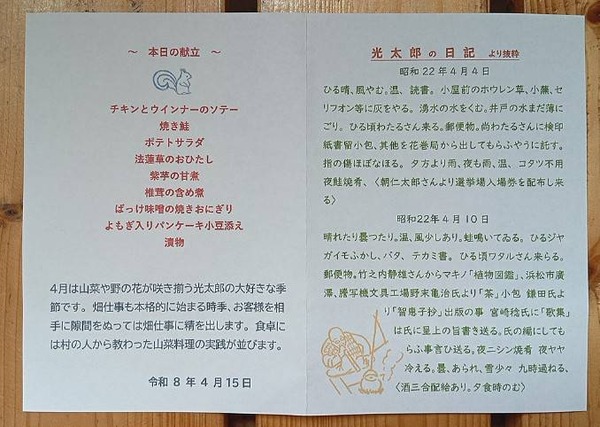 ～ 本日の献立 ～
チキンとウインナーのソテー
焼き鮭
ポテトサラダ
法蓮草のおひたし
紫芋の甘煮
椎茸の含め煮
ばっけ味噌の焼きおにぎり
よもぎ入りパンケーキ小豆添え
漬物
4月は山菜や野の花が咲き揃う光太郎の大好きな季
節です。畑仕事も本格的に始まる時季、お客様を相
手に隙間をぬっては畑仕事に精を出します。食卓に
は村の人から教わった山菜料理の実践が並びます。
令和 8 年 4 月 15日
光太郎の日記 より抜粋
昭和 22 年 4 月 4 日
ひる晴、風やむ。温、読書。小屋前のホウレン草、小蕪、セ
リフオン等に灰をやる。湧水の水をくむ。井戸の水まだ薄に
ごり。ひる頃わたるさん来る。郵便物。尚わたるさんに検印
紙書留小包、其他を花巻局から出してもらふやうに託す。
指の傷ほぼなほる。夕方より雨、夜も雨、温、コタツ不用
夜鮭焼肴、〈朝仁太郎さんより選挙場入場券を配布し来
る〉
昭和22年 4 月 10 日
晴れたり曇つたり。温、風少しあり。蛙鳴いてゐる。ひるジヤ
ガイモふかし、バタ、テカミ書。ひる頃ワタルさん来らる。
郵便物。竹之内静雄さんからマキノ「植物図鑑」、浜松市廣
澤、謄写機文具工場野末亀治氏より「茶」小包 鎌田氏よ
り「智恵子抄」出版の事 宮崎稔氏に「歌集」
は氏に呈上の旨書き送る。氏の編にしても
らふ事言ひ送る。夜ニシン焼肴 夜ヤヤ
冷える。曇、あられ、雪少々 九時過ねる、
〈酒三合配給あり。夕食時のむ〉